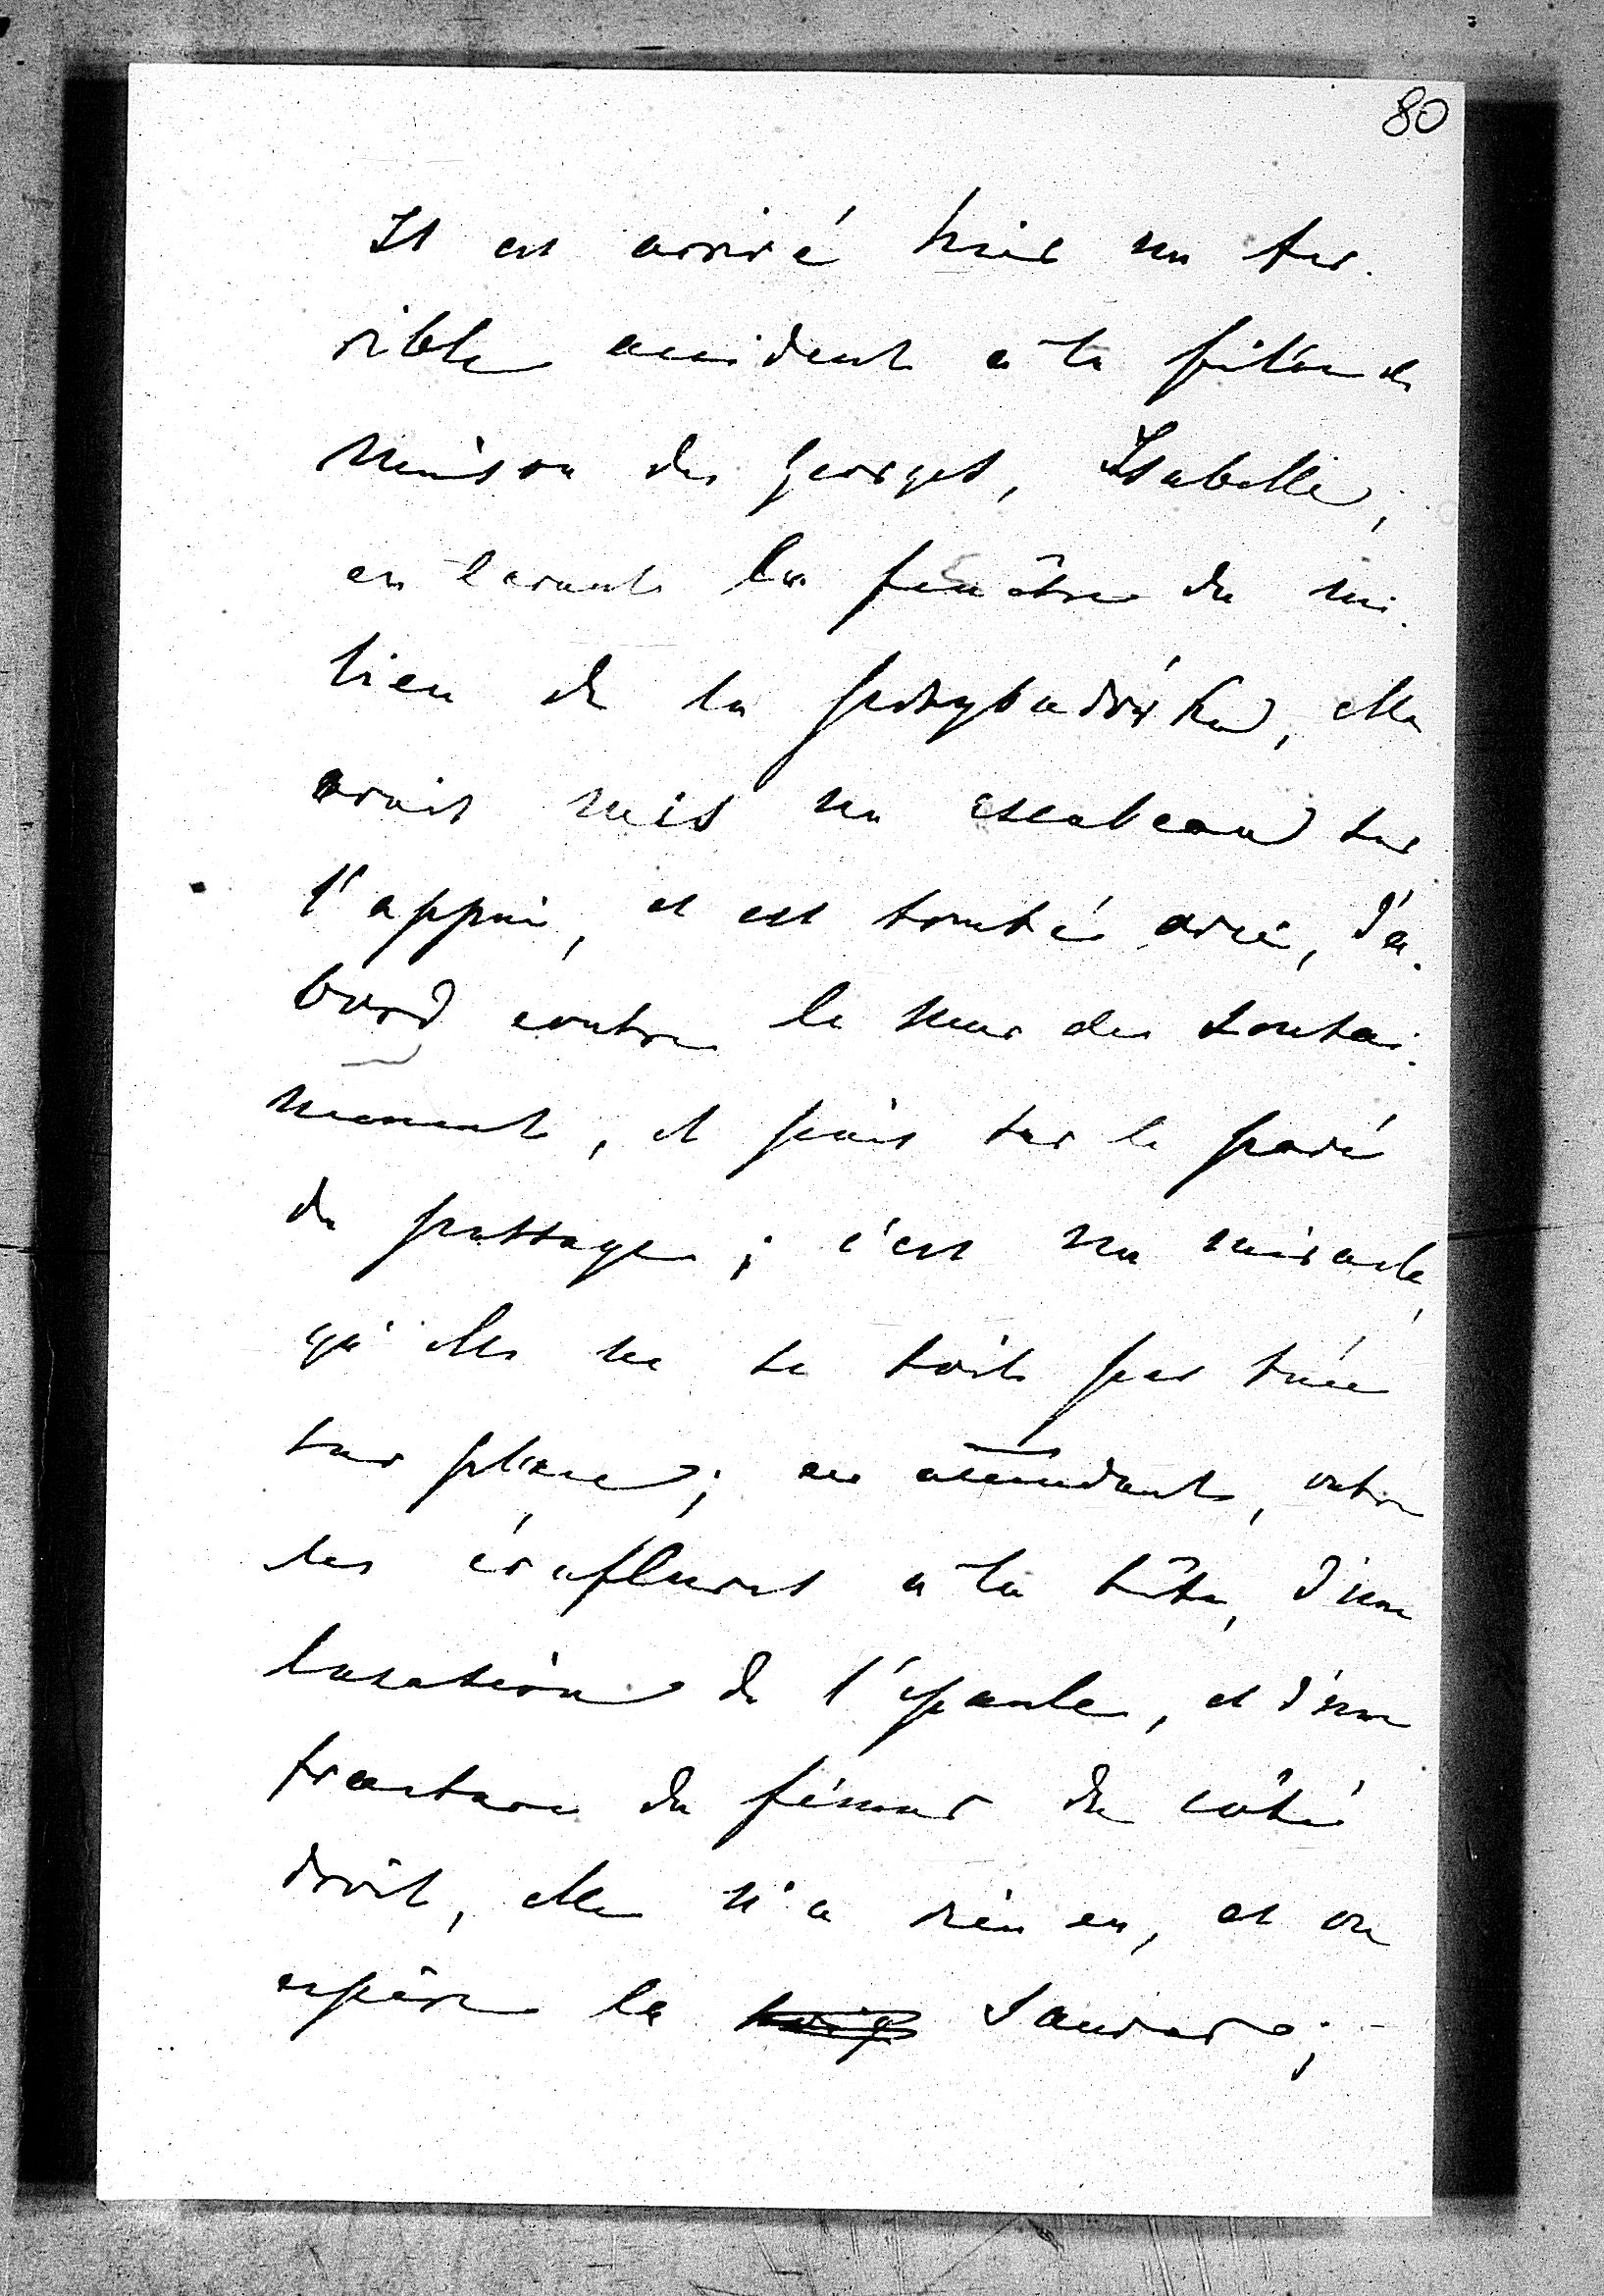 80
Il est arrivé hier un ter-
rible accident à la fille de
maison des Georges, Isabelle;
en lavant la fenêtre du mi-
lieu de la
avait mis un escabeau sur
l'appui, et est tombée avec, d'a-
bord contre le mur de soutai-
nement, et puis sur le pavé
du passage; c'est un miracle,
qu'elle ne se soit pas tuée
sur place; en attendant, outre
les éraflures à la tête, d'une
luxation de l'épaule, et d'une
fracture du fémur du côté
droit, elle n'a rien eu, et on
espère la sauver;